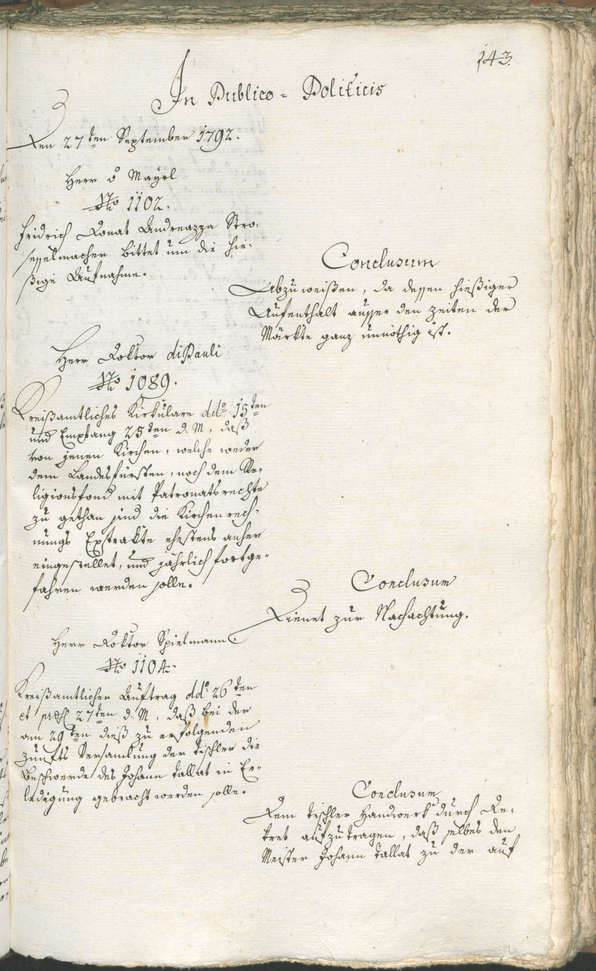 143.
In Publico = Politicis
Den 27ten September 1792.
Herr v Mayrl
No 1102.
Fridrich Donat Andreazza Stro-
sesselmacher bittet um die hie-
ßige Aufnahme.
Conclusum
Abzuweißen, da dessen hießiger
Aufenthalt ausser den zeiten der
Märkte ganz unnöthig ist.
Herr Doktor diPauli
No 1089.
Kreißamtliches Cirkulare ddo 15ten
und Empfang 25ten d. M., daß
von jenen Kirchen, welche weder
dem Landsfürsten, noch dem Re-
ligionsfond mit Patronatsrechte
zu gethan sind die Kirchenrech-
nungs Extrakte ehestens anher
eingestellet, und jährlich fortge-
fahren werden solle.
Conclusum
Dienet zur Nachachtung.
Herr Doktor Spielmann
No 1104.
Kreißamtlicher Auftrag ddo 26ten
et 27ten d. M., daß bei der
am 29ten dieß zu erfolgenden
zunfts Versamlung der tischler die
Beschwerde des Johann tallat in Er-
ledigung gebracht werden solle.
Conclusum
Dem tischler Handwerk durch De-
kret aufzutragen, daß selbes den
Meister Johann tallat zu der auf